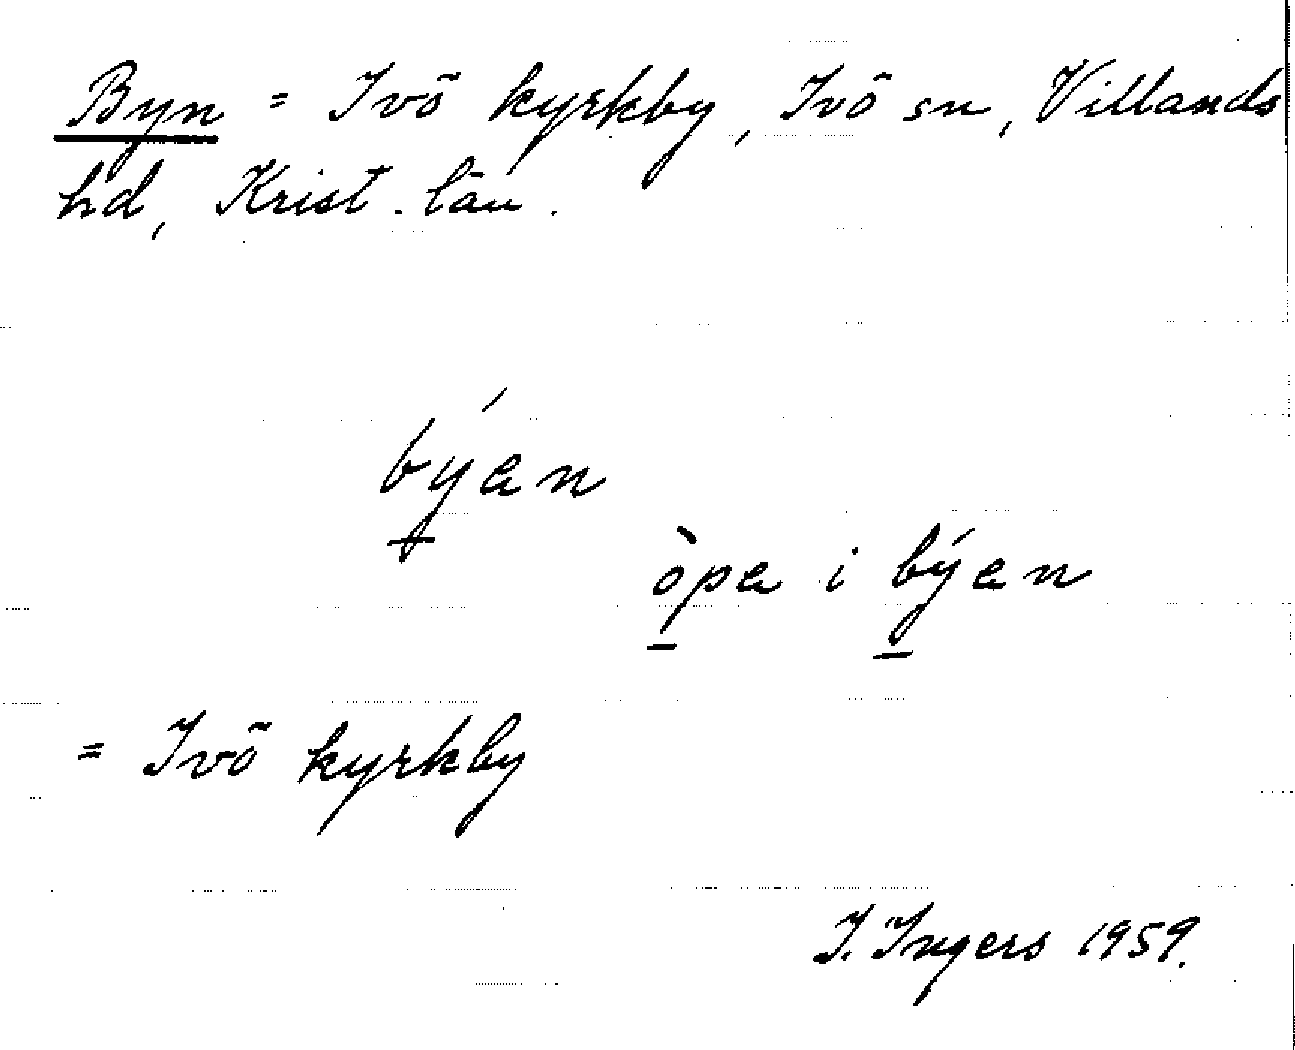 Byn = Ivö kyrkby, Ivö sn, Villands
hd, Krist. län.
býan
òpa i býan
= Ivö kyrkby
I. Ingers 1959.